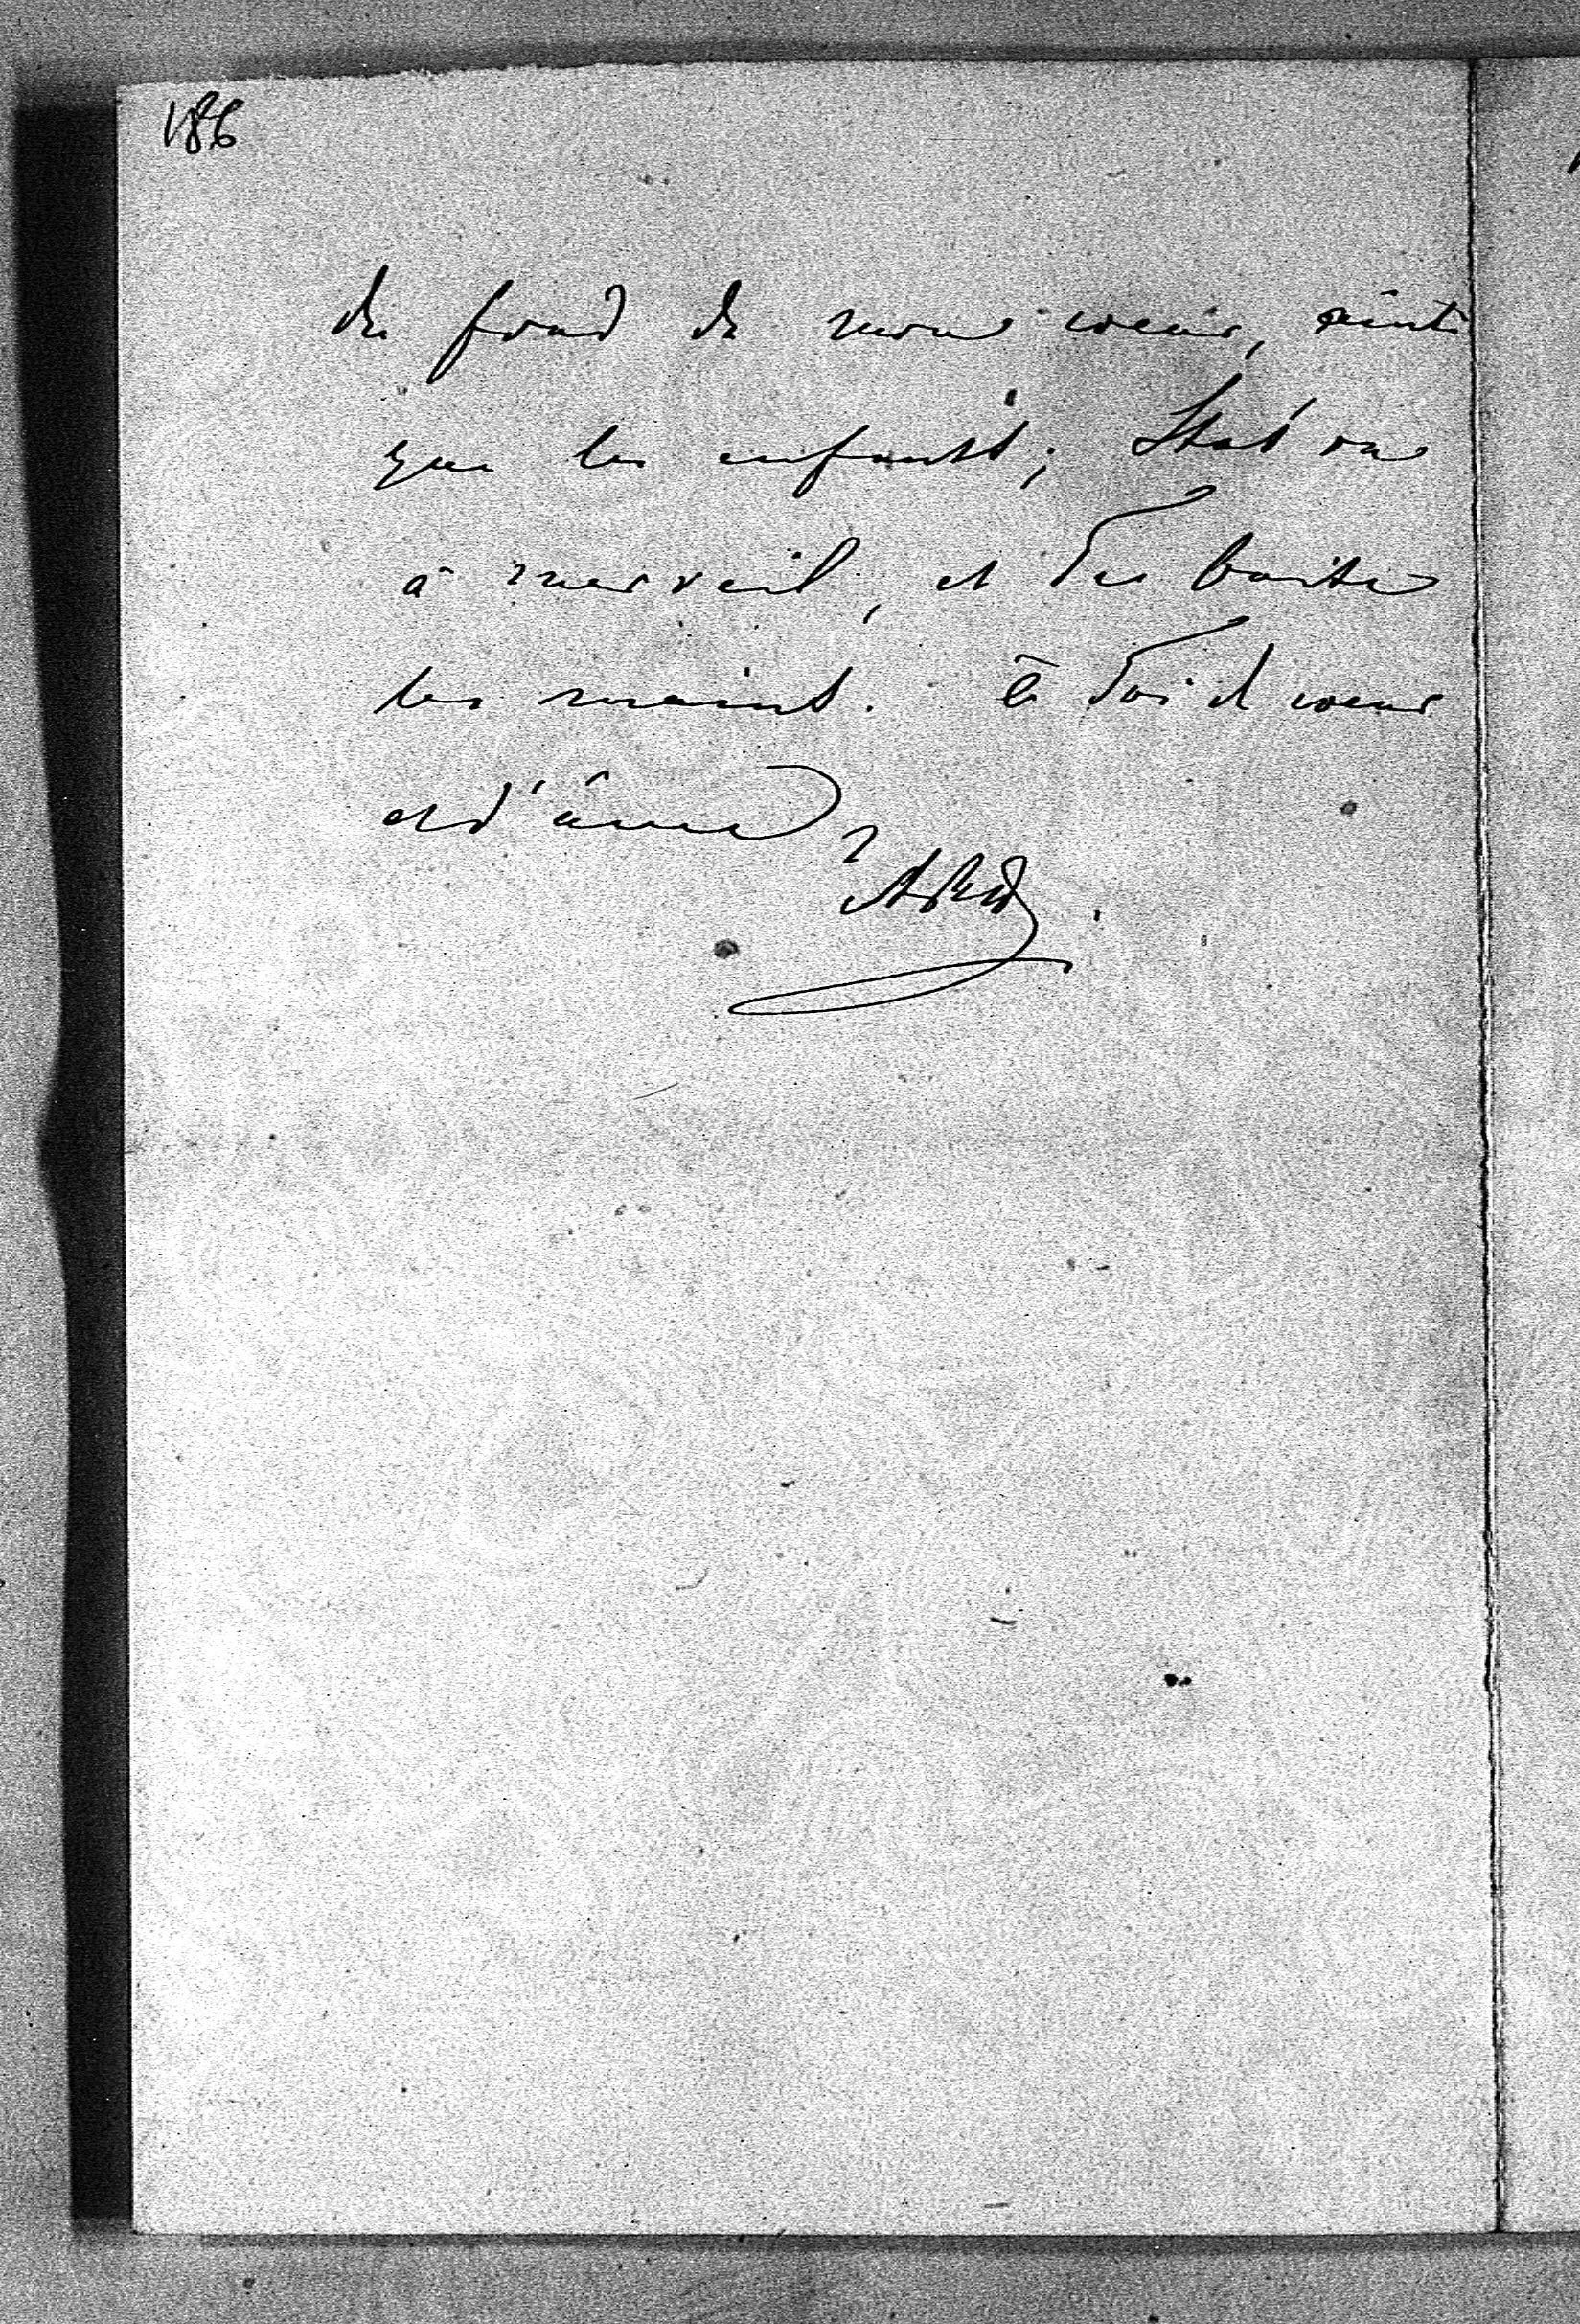 186
du fond de mon coeur, ainsi
que les enfants; Stas va
à merveil, et Te baise
les mains. à Toi d coeur
et d'âme